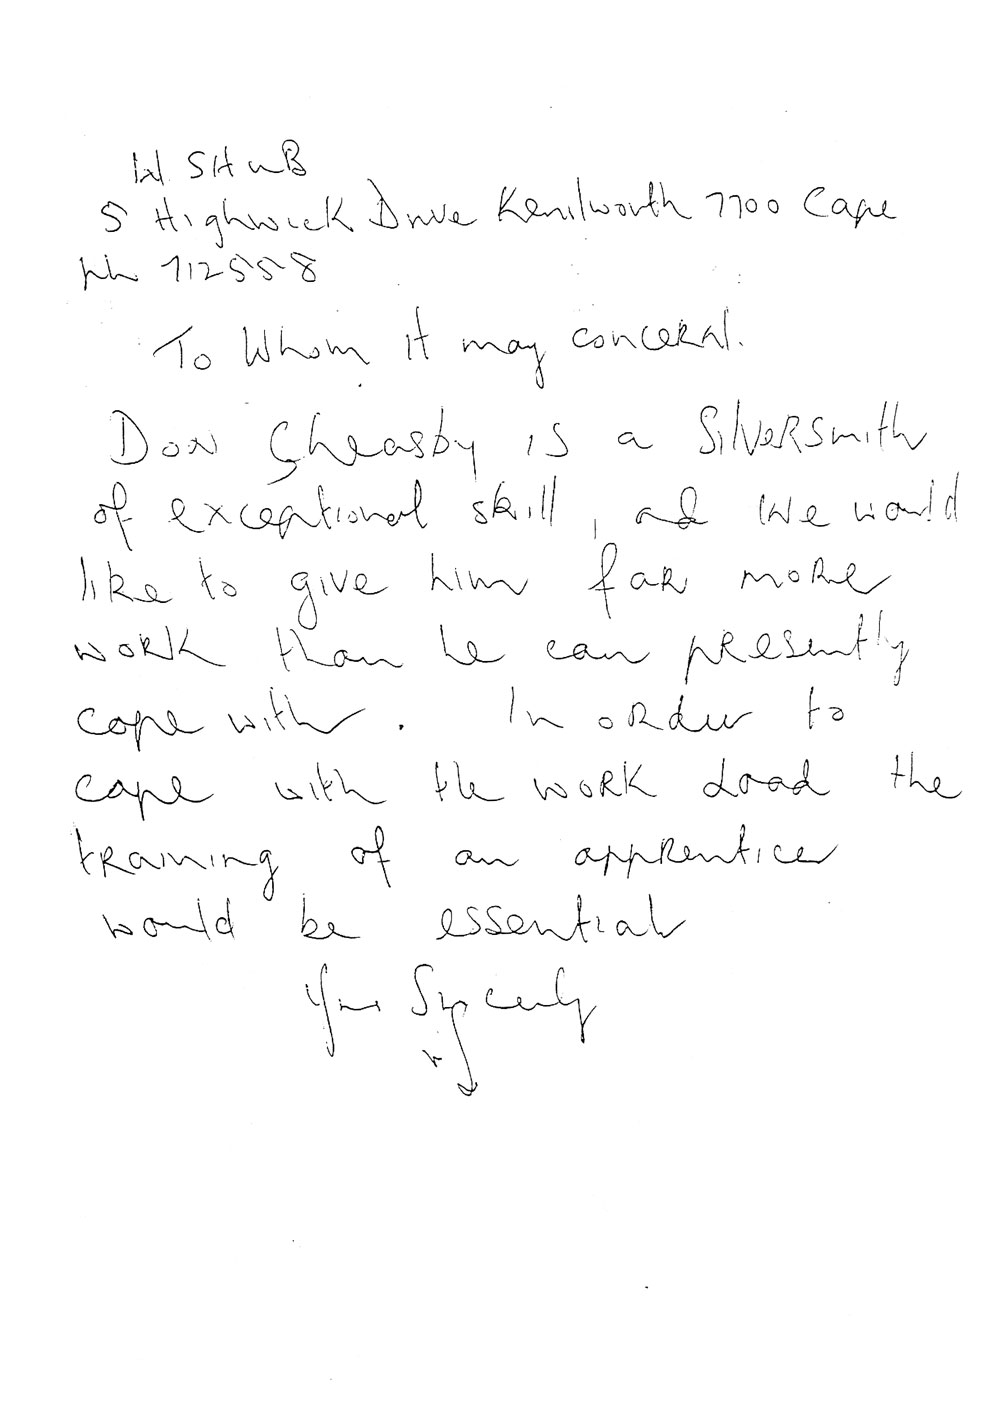 W SHUB
5 Highwick Drive Kenilworth 7700 Cape
ph 712558
To Whom it may concern.
Don Cheasby is a Silversmith
of exceptional skill, and we would
like to give him far more
work than he can presently
cope with. In order to
cope with the work load the
training of an apprentice
would be essential
Yours Sincerely